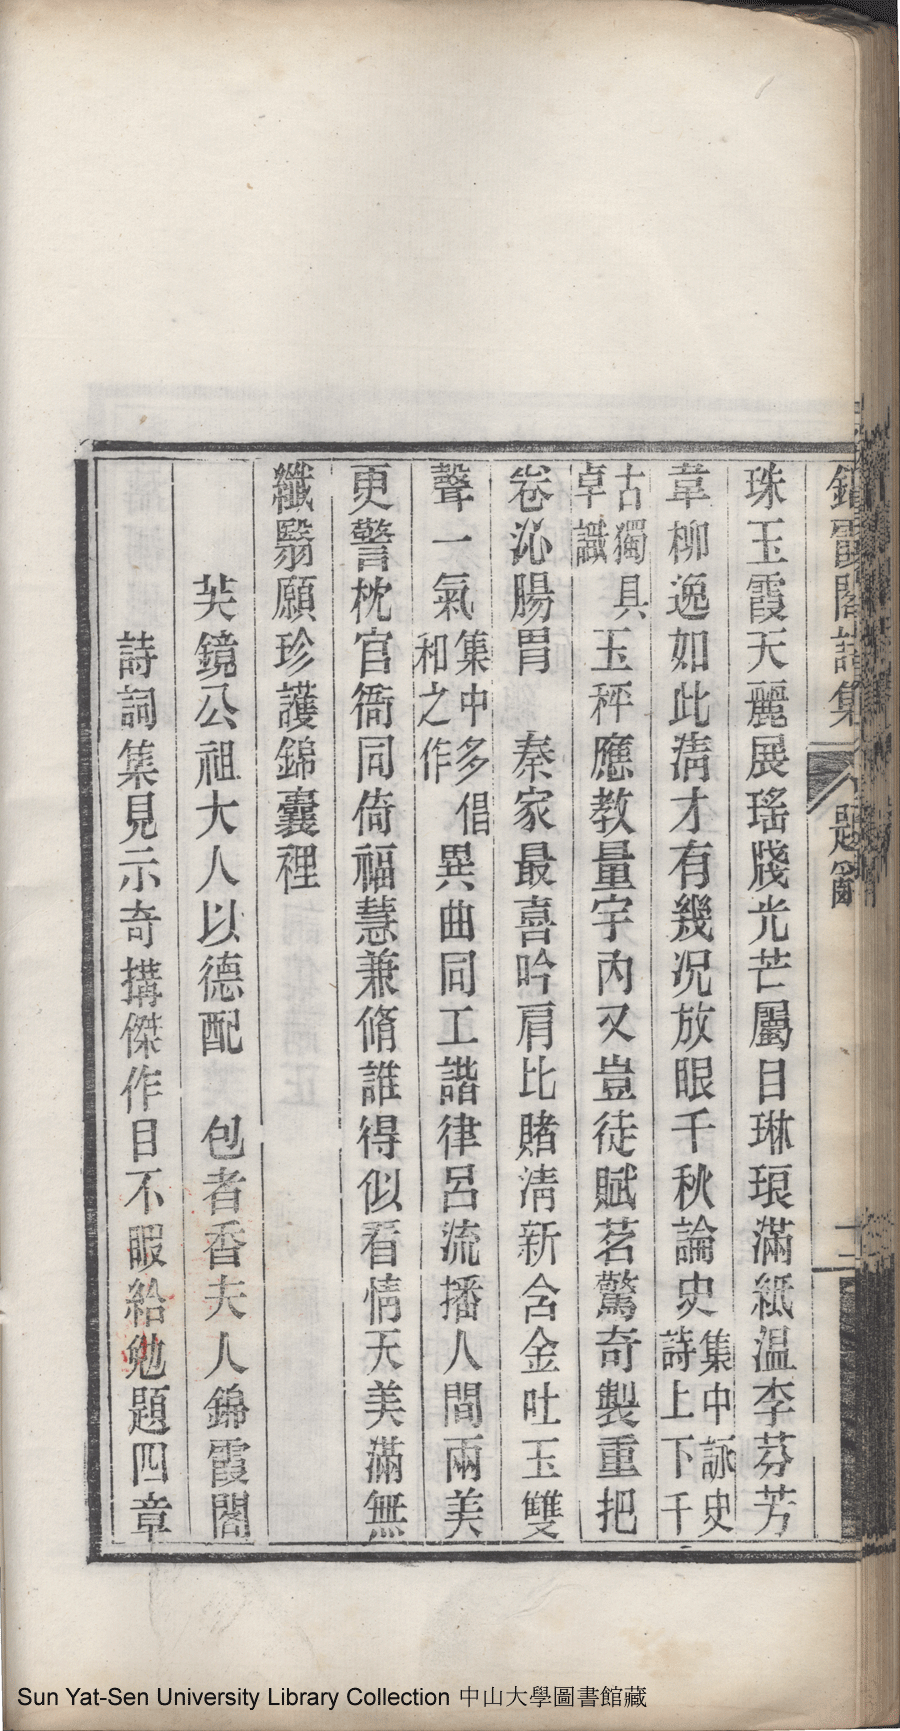 錦霞閣詩集 題詞
珠玉霞天麗展瑤牋光芒屬目琳琅滿紙溫李芬芳
韋柳逸如此淸才有幾况放眼千秋論史集中詠史詩上下千
古獨具卓識玉秤應教量宇內又豈徒賦茗驚奇製重把
卷沁腸胃 秦家最喜吟肩比賭淸新含金吐玉雙
聲一氣集中多倡和之作異曲同工諧律呂流播人間兩美
更警枕官衙同倚福慧兼脩誰得似看情天美滿無
纖翳願珍護錦囊裡
芙鏡公祖大人以德配 包者香夫人錦霞閣
詩詞集見示奇搆傑作目不暇給勉題四章
Sun Yat-Sen University Library Collection 中山大學圖書館藏